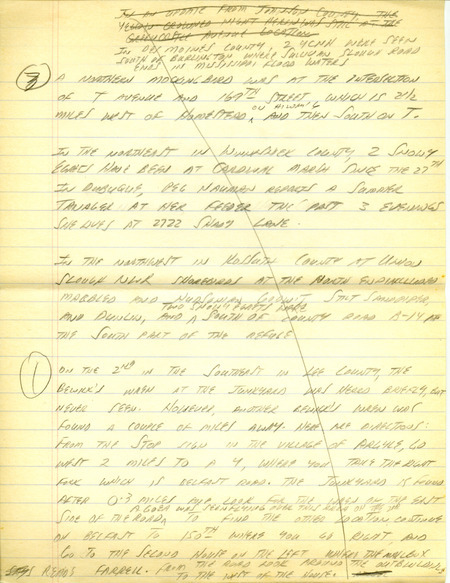 In an update from Johnson County, the
Yellow-crowned Night Heron was still at the
location
In Des Moines County 2 YCNH were seen
south of Burlington where Sullivan Slough Road
ends in Mississippi flood waters
3
A Northern Mockingbird was at the intersection
of T Avenue and 169th Street, which is 2 1/2
miles west of Homestead, on Hiway 6 and then south on T.
In the northeast in Winneshiek County, 2 Snowy
Egrets have been at Cardinal Marsh since the 27th
In Dubuque, Peg Nauman reports a Summer
Tanager at her feeder the past 3 evenings
She lives at 2722 Shady Lane.
In the northwest in Kossuth County at Union
Slough NWR shorebirds at the north end included
Marbled and Hudsonian Godwit Stilt Sandpiper,
and Dunlin, and two Snowy Egrets were south of County Road A-14 in
the south part of the refuge
1
On the 2nd in the southeast in Lee County, the
Bewick's Wren at the junkyard was heard briefly, but
never seen. However, another Bewick's Wren was
found a couple of miles away. Here are directions:
From the stop sign in the village of Argyle, go
west 2 miles to a Y, where you take the right
fork which is Belfast Road. The junkyard is found
after 0.3 miles and look for the wren on the east
side of the road, to find the other location, continue
on Belfast to 150th where you go right and
go to the second house on the left where the mailbox
reads Farrell. From the road look around the outbuildings
to the west of the house.